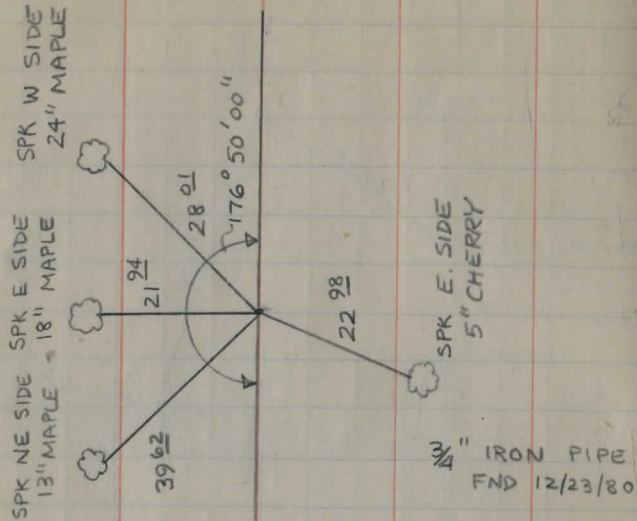 SPK NE SIDE
13" MAPLE
SPK E SIDE
18" MAPLE
SPK W SIDE
24" MAPLE
39 62
21 94
28 01
176° 50' 00"
22 98
SPK E. SIDE
5" CHERRY
3/4" IRON PIPE
FND 12/23/80